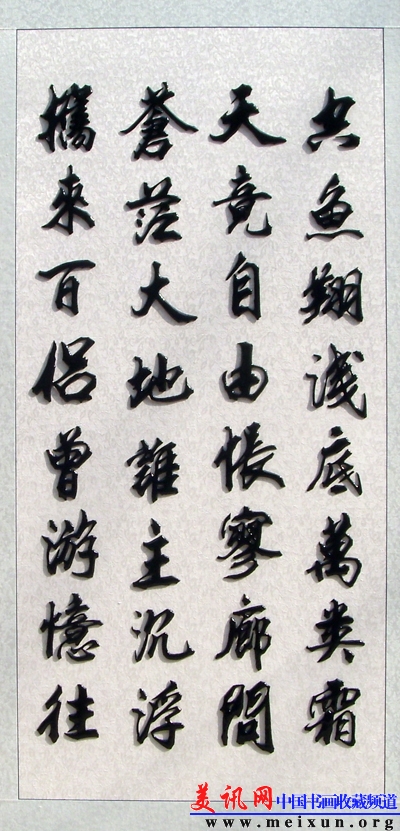 空魚翔淺底萬类霜
天竟自由悵寥廓問
蒼茫大地誰主沉浮
攜來百侣曾游憶往
美讯网 中国书画收藏频道
www.meixun.org